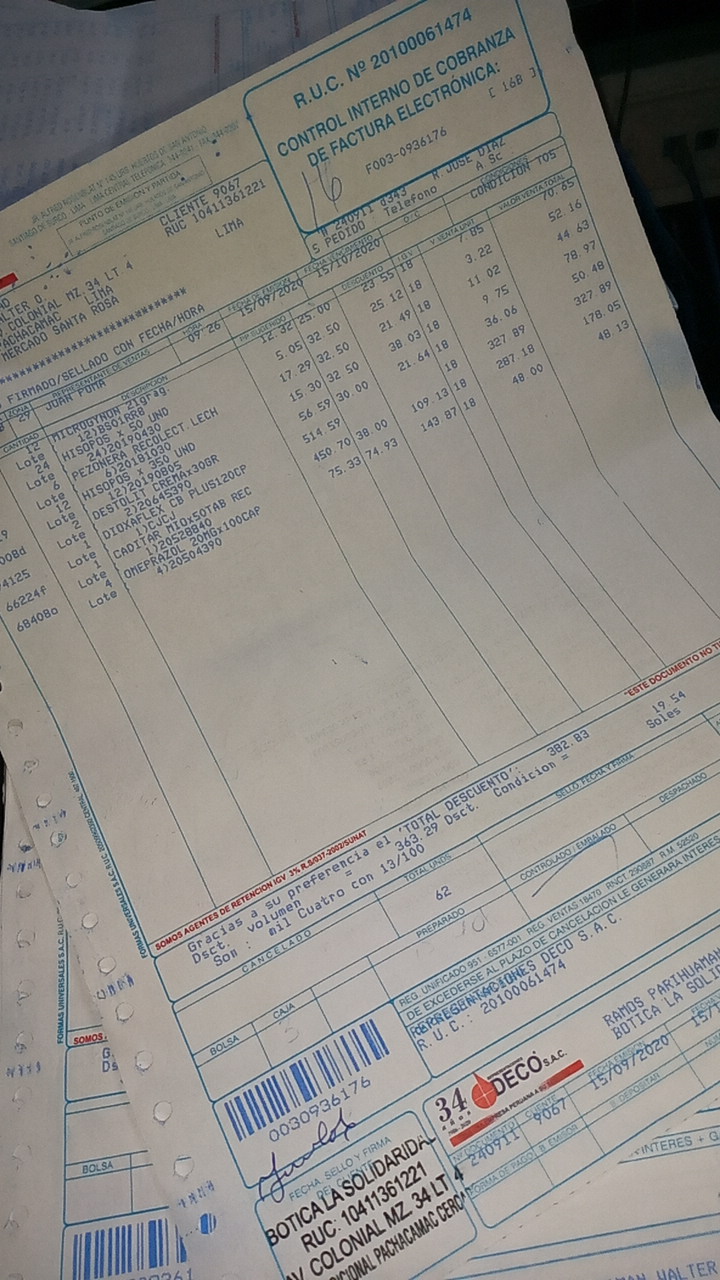 R.U.C. Nº 20100061474
CONTROL INTERNO DE COBRANZA
DE FACTURA ELECTRÓNICA:
[ 168 ]
F003-0936176
16
PUNTO DE EMISIÓN Y PARTIDA
CLIENTE 9067
RUC 10411361221
LIMA
ALTER O.
COLONIAL MZ 34 LT 4
PACHACAMAC LIMA
MERCADO SANTA ROSA
FIRMADO/SELLADO CON FECHA/HORA
R.JOSE DIAZ
240911 0343
PEDIDO Telefono
CONDICION TOS
REPRESENTANTE DE VENTAS
JUAN POMA
HORA
09:26
FECHA DE EMISIÓN
15/09/2020
FECHA VENCIMIENTO
15/10/2020
O/C
CONDICIONES
CANTIDAD DESCRIPCIÓN PP SUGERIDO % DESCUENTO I.G.V. V.VENTA UNIT VALOR VENTA TOTAL
12 MICROGYNON 21grag. 12.32 25.00 23.55 18 7.85 70.65
Lote 12)BS01RR8
24 HISOPOS x 50 UND 5.05 32.50 25.12 18 3.22 52.16
Lote 24)20190430
6 PEZONERA RECOLECT.LECH 17.29 32.50 21.49 18 11.02 44.63
Lote 6)20181030
12 HISOPOS x 350 UND 15.30 32.50 38.03 18 9.75 78.97
Lote 12)20190805
2 DESTOLIT CREMAx30GR 56.59 30.00 21.64 18 36.06 50.48
Lote 2)20645390
1 DIOXAFLEX CB PLUS120CP 514.59 18 327.89 327.89
Lote 1)CJCJ
1 CADITAR MIOx50TAB REC 450.70 38.00 109.13 18 287.18 178.05
Lote 1)20528840
4 OMEPRAZOL 20MGx100CAP 75.33 74.93 143.87 18 48.00 48.13
Lote 4)20504390
008d
4125
66224f
68408o
"ESTE DOCUMENTO NO
SOMOS AGENTES DE RETENCION IGV 3% R.S/037-2002/SUNAT
Gracias a su preferencia el 'TOTAL DESCUENTO': 382.83
Dsct. Volumen = 363.29 Dsct. Condicion = 19.54
Son : mil Cuatro con 13/100 Soles
CANCELADO
TOTAL UNDS
62
SELLO, FECHA Y FIRMA
PREPARADO
CONTROLADO / EMBALADO
DESPACHADO
BOLSA
CAJA
DE EXCEDERSE AL PLAZO DE CANCELACION LE GENERARA INTERES
REPRESENTACIONES DECO S.A.C.
R.U.C.: 20100061474
0030936176
FECHA, SELLO Y FIRMA
BOTICA LA SOLIDARIDA
RUC: 10411361221
AV. COLONIAL MZ. 34 LT 4
34 AÑOS
DECO S.A.C.
RAMOS PARIHUAMAN
BOTICA LA SOLI
Nº DOCUMENTO
240911
CLIENTE
9067
FECHA EMISIÓN
15/09/2020
15/1
FORMA DE PAGO
B. EMISOR
B. DEPOSITAR
INTERES + G
BOLSA
SOMOS